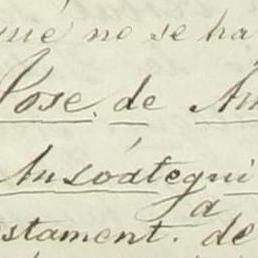 qué no se ha
Jose de
Ansóategui
a
stament. de